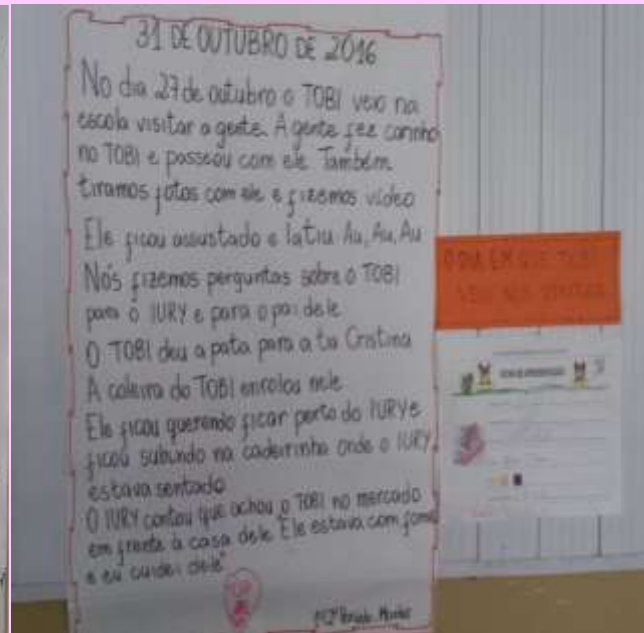 31 DE OUTUBRO DE 2016
No dia 27 de outubro o TOBI veio na
escola visitar a gente. A gente fez carinho
no TOBI e passeou com ele. Também
tiramos fotos com ele e fizemos vídeo
Ele ficou assustado e latiu Au, Au, Au
Nós fizemos perguntas sobre o TOBI
para o IURY e para o pai dele
O TOBI deu a pata para a tia Cristina
A coleira do TOBI enrolou nele
Ele ficou querendo ficar perto do IURY e
ficou subindo na cadeirinha onde o IURY
estava sentado
O IURY contou que achou o TOBI no mercado
em frente à casa dele. Ele estava com fome
e eu cuidei dele"
O DIA EM QUE TOBI
VEIO NOS VISITAR